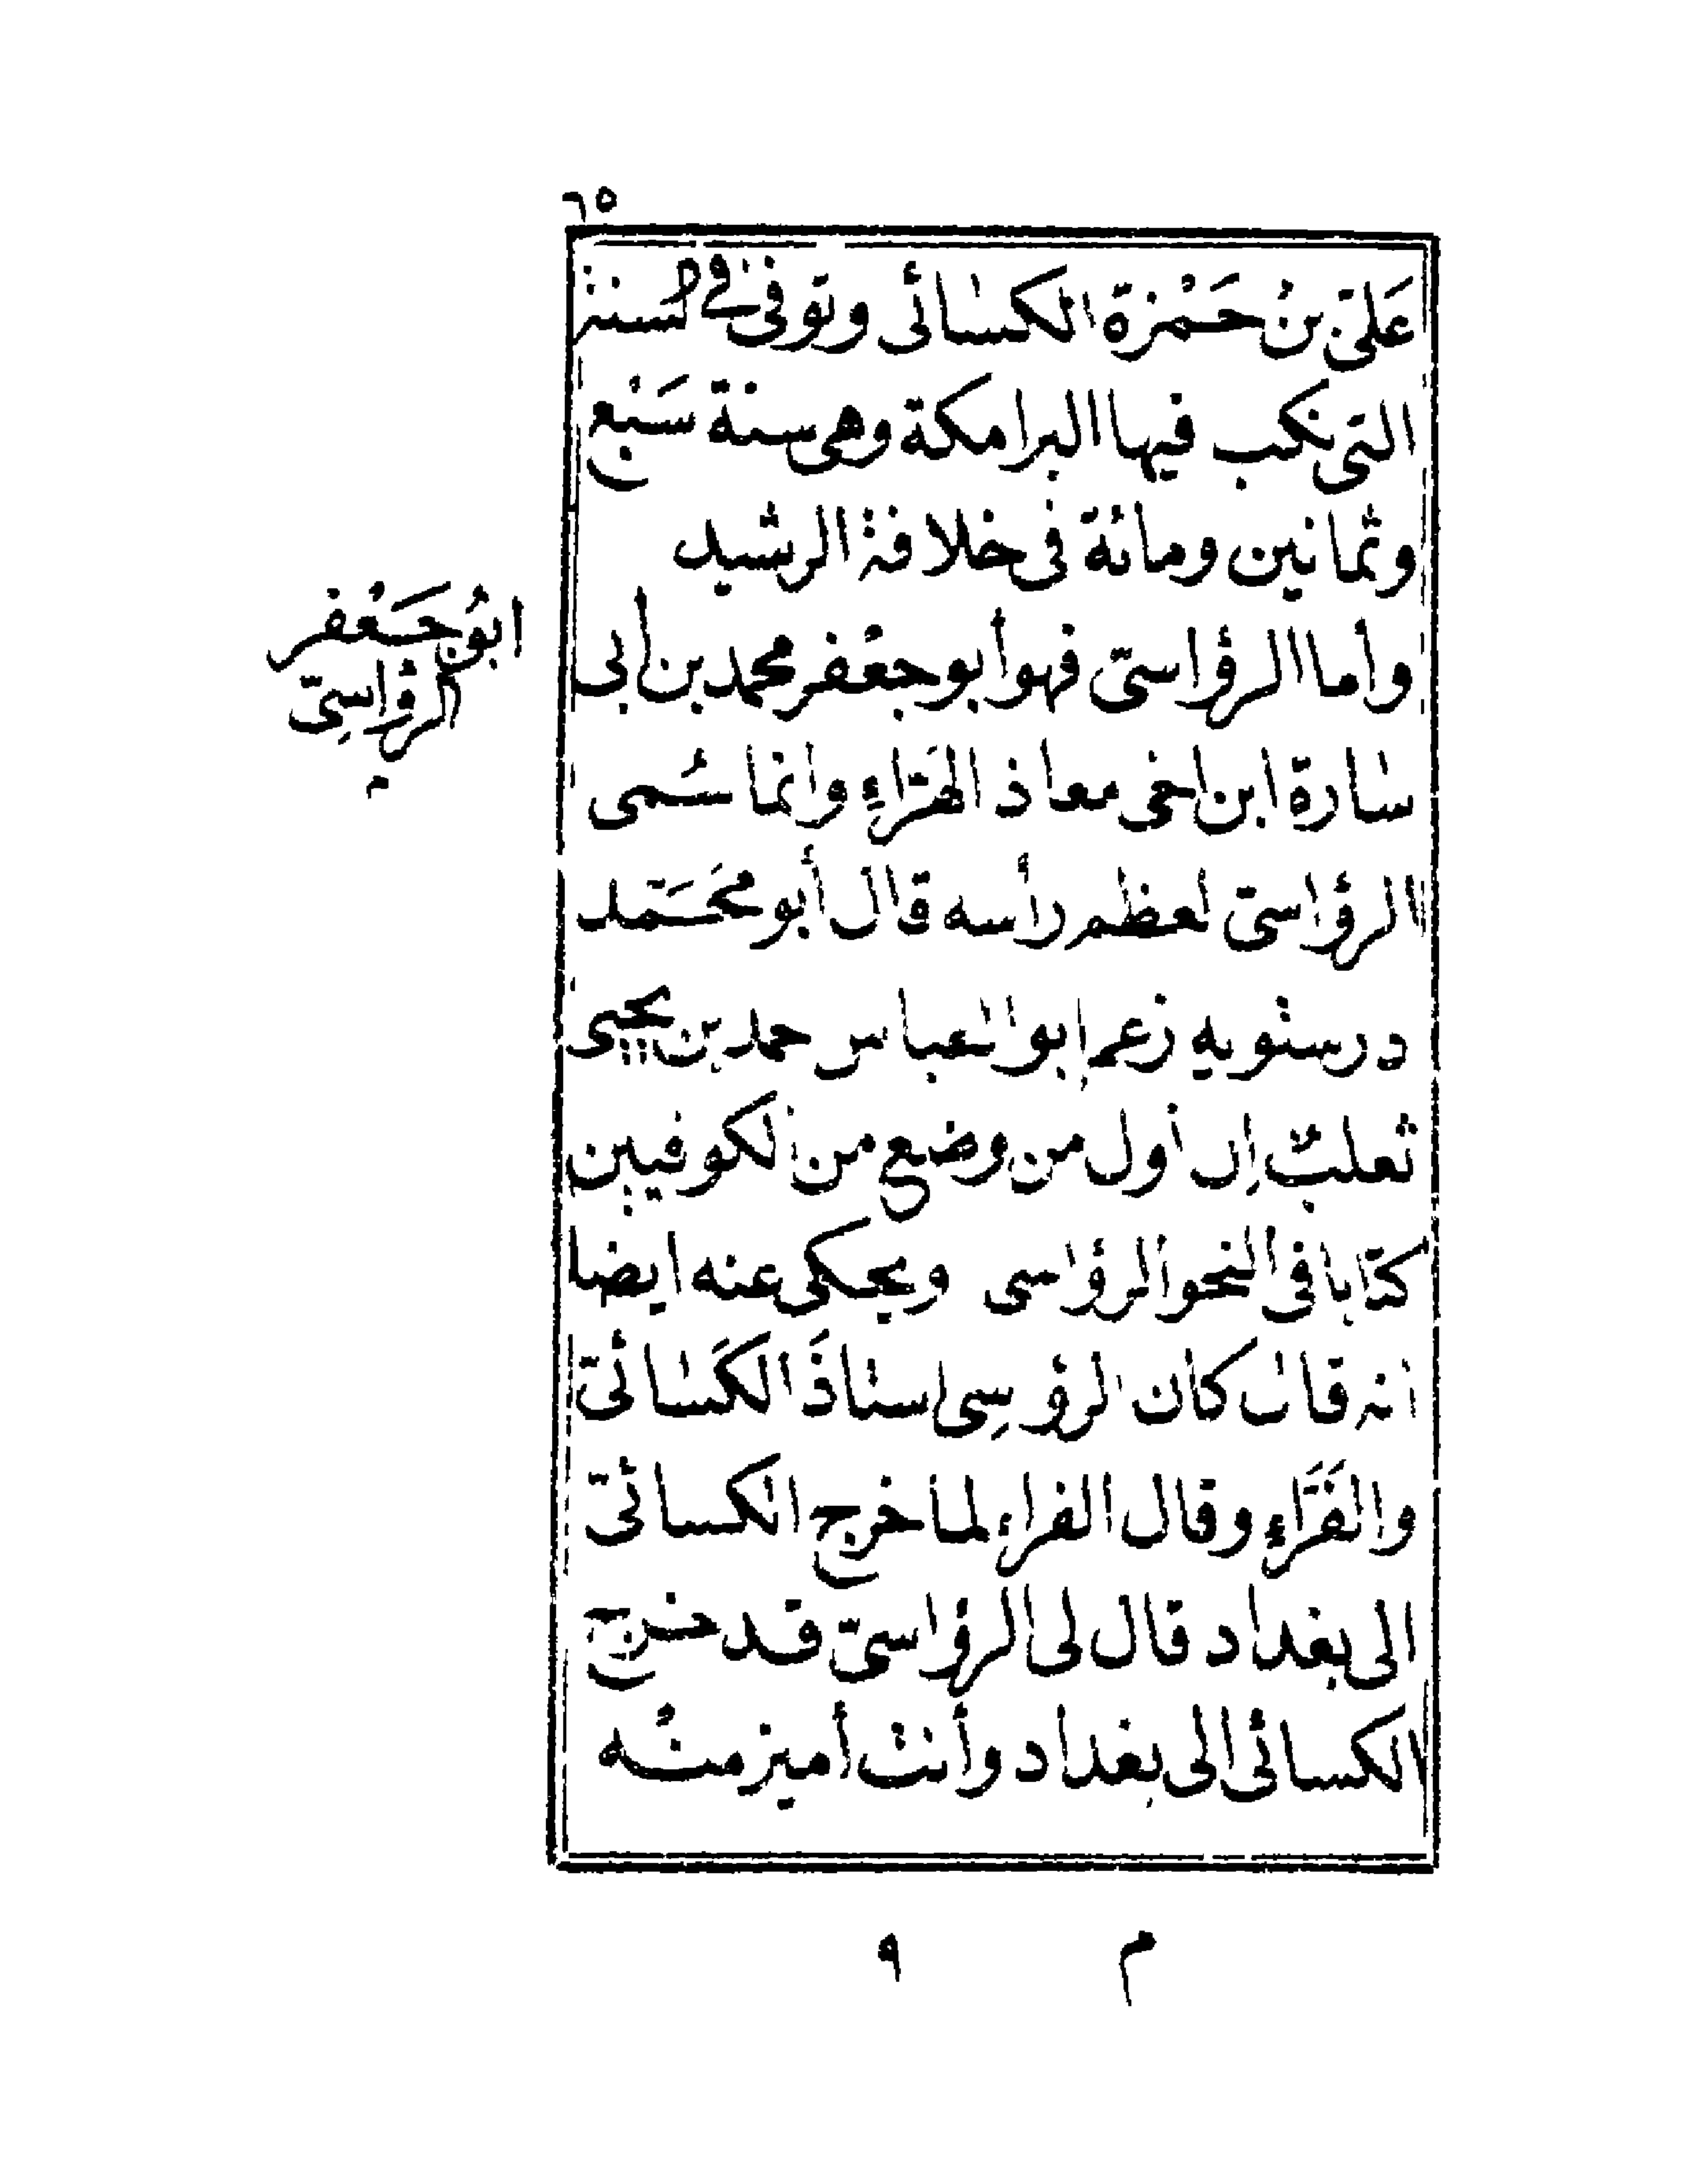 ٦٥
عَلىّ بنُ حَمْزة الكسائى وتوفى فى السنة
التى نكب فيها البرامكة وهى سنة سَبْع
وثمانين ومائة فى خلافة الرشيد
ابُو جَعْفر
الرؤاسِىّ
وأما الرؤاسىّ فهو أبو جعْفر محمد بن أبى
سارة ابن اخى معاذ الهَرّاءِ وانما سُمى
الرؤاسىّ لعظم رأسه قال أبو محَمَّد
درستويه زعم ابو العباس حمد بن يحيى
ثعلبٌ إن أول من وضع من الكوفيين
كتابا فى النحو الرؤاسى ويحكى عنه ايضا
انه قال كان الرؤسِى استاذَ الكَسائىّ
والفَرّاءِ وقال الفراء لما خرج الكسائىّ
الى بغداد قال لى الرؤاسىّ قد خرج
الكسائى الى بغداد وأنت أميز منْه
م ٩